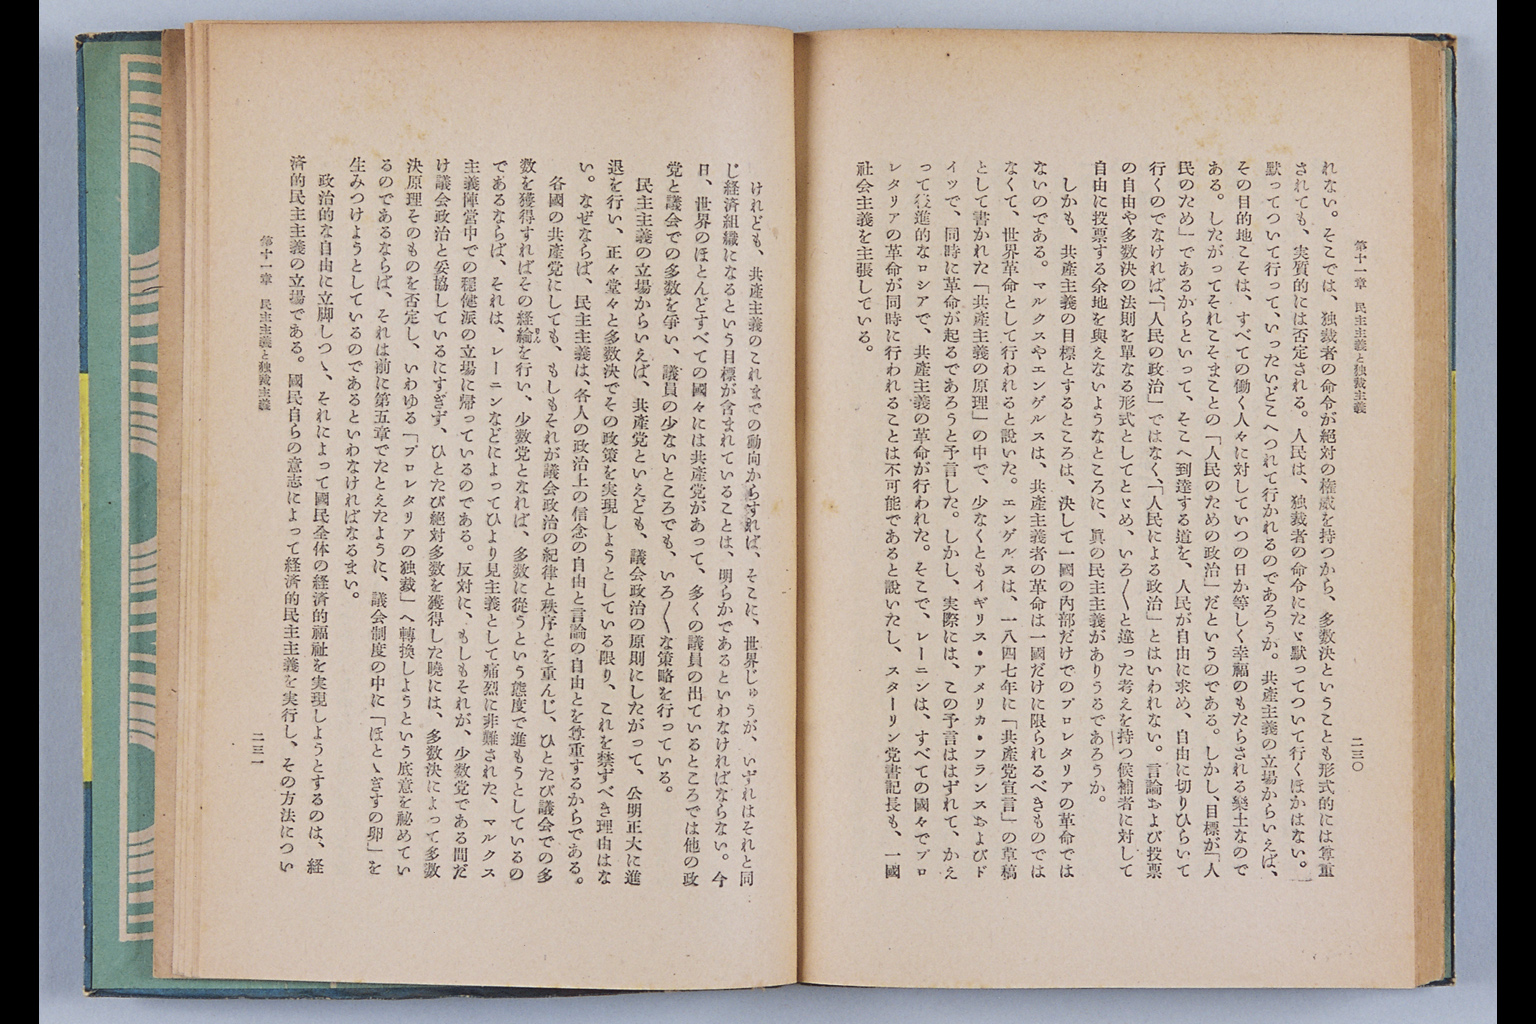 第十一章　民主主義と独裁主義
二三〇
れない。そこでは、独裁者の命令が絶対の権威を持つから、多数決ということも形式的には尊重
されても、実質的には否定される。人民は、独裁者の命令にたゞ默ってついて行くほかはない。
默ってついて行って、いったいどこへつれて行かれるのであろうか。共產主義の立場からいえば、
その目的地こそは、すべての働く人々に対していつの日か等しく幸福のもたらされる樂土なので
ある。したがってそれこそまことの「人民のための政治」だというのである。しかし、目標が「人
民のため」であるからといって、そこへ到達する道を、人民が自由に求め、自由に切りひらいて
行くのでなければ、「人民の政治」ではなく、「人民による政治」とはいわれない。言論および投票
の自由や多数決の法則を單なる形式としてとゞめ、いろ〱と違った考えを持つ候補者に対して
自由に投票する余地を與えないようなところに、眞の民主主義がありうるであろうか。
しかも、共產主義の目標とするところは、決して一國の內部だけでのプロレタリアの革命では
ないのである。マルクスやエンゲルスは、共產主義者の革命は一國だけに限られるべきものでは
なくて、世界革命として行われると說いた。エンゲルスは、一八四七年に「共產党宣言」の草稿
として書かれた「共產主義の原理」の中で、少なくともイギリス・アメリカ・フランスおよびド
イツで、同時に革命が起るであろうと予言した。しかし、実際には、この予言ははずれて、かえ
って後進的なロシアで、共產主義の革命が行われた。そこで、レーニンは、すべての國々でプロ
レタリアの革命が同時に行われることは不可能であると說いたし、スターリン党書記長も、一國
社会主義を主張している。
けれども、共產主義のこれまでの動向からすれば、そこに、世界じゅうが、いずれはそれと同
じ経済組織になるという目標が含まれていることは、明らかであるといわなければならない。今
日、世界のほとんどすべての國々には共產党があって、多くの議員の出ているところでは他の政
党と議会での多数を爭い、議員の少ないところでも、いろ〱な策略を行っている。
民主主義の立場からいえば、共產党といえども、議会政治の原則にしたがって、公明正大に進
退を行い、正々堂々と多数決でその政策を実現しようとしている限り、これを禁ずべき理由はな
い。なぜならば、民主主義は、各人の政治上の信念の自由と言論の自由とを尊重するからである。
各國の共產党にしても、もしもそれが議会政治の紀律と秩序とを重んじ、ひとたび議会での多
数を獲得すればその経綸を行い、少数党となれば、多数に從うという態度で進もうとしているの
であるならば、それは、レーニンなどによってひより見主義として痛烈に非難された、マルクス
主義陣営中での穏健派の立場に帰っているのである。反対に、もしもそれが、少数党である間だ
け議会政治と妥協しているにすぎず、ひとたび絶対多数を獲得した曉には、多数決によって多数
決原理そのものを否定し、いわゆる「プロレタリアの独裁」へ轉換しようという底意を秘めてい
るのであるならば、それは前に第五章でたとえたように、議会制度の中に「ほとゝぎすの卵」を
生みつけようとしているのであるといわなければなるまい。
政治的な自由に立脚しつゝ、それによって國民全体の経済的福祉を実現しようとするのは、経
済的民主主義の立場である。國民自らの意志によって経済的民主主義を実行し、その方法につい
第十一章　民主主義と独裁主義
二三一